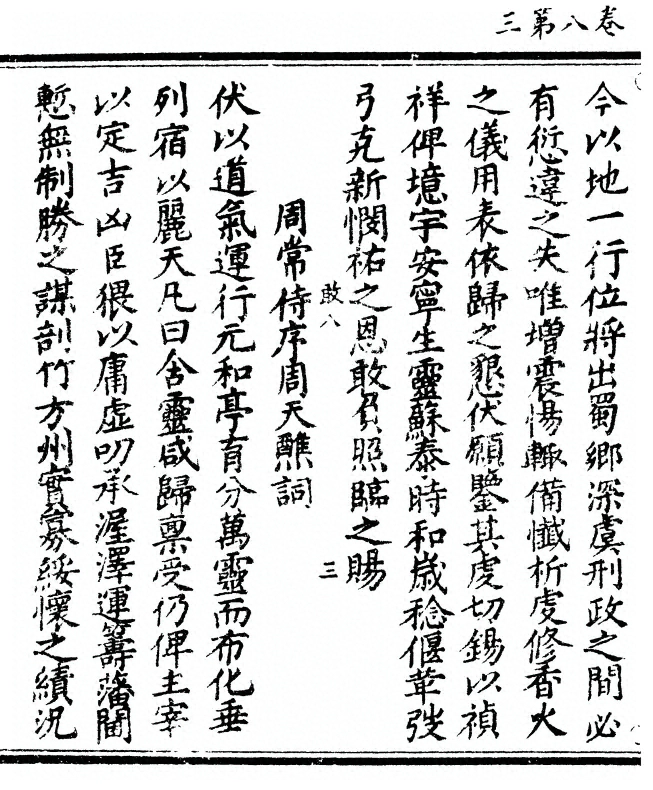 卷八第三
今以地一行位將出蜀鄉深虞刑政之間必
有愆違之失唯增震惕輙備懺祈虔修香火
之儀用表依歸之懇伏願鑒其虔切錫以禎
祥俾境宇安寧生靈蘇泰時和歲稔偃革弢
弓克新憫祐之恩敢負照臨之賜
敢八
三
周常侍序周天醮詞
伏以道氣運行元和亭育分萬靈而布化垂
列宿以麗天凡曰含靈咸歸稟受仍俾主宰
以定吉凶臣猥以庸虛叨承渥澤運籌藩閫
慙無制勝之謀剖竹方州實寡綏懷之績況